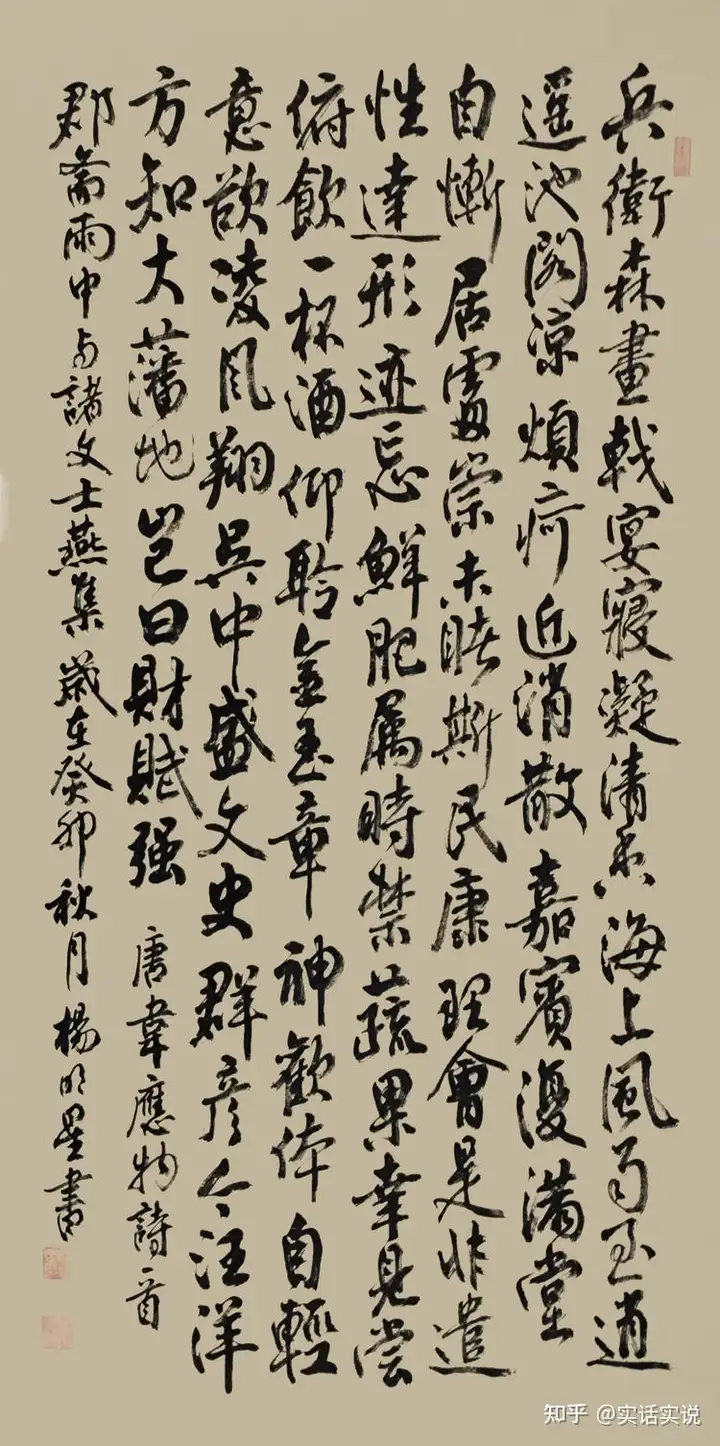 兵衛森畫戟宴寢凝清香海上風雨至逍
遥池閣涼煩疴近消散嘉賓復滿堂
自慚居處崇未睹斯民康理會是非遣
性達形迹忘鮮肥属時禁蔬果幸見尝
俯飲一杯酒仰聆金玉章神歡体自輕
意欲凌風翔吳中盛文史群彦今汪洋
方知大藩地豈曰財賦强 唐韋應物詩一首
郡齋雨中与諸文士燕集 歲在癸卯秋月楊明星書
知乎 @实话实说